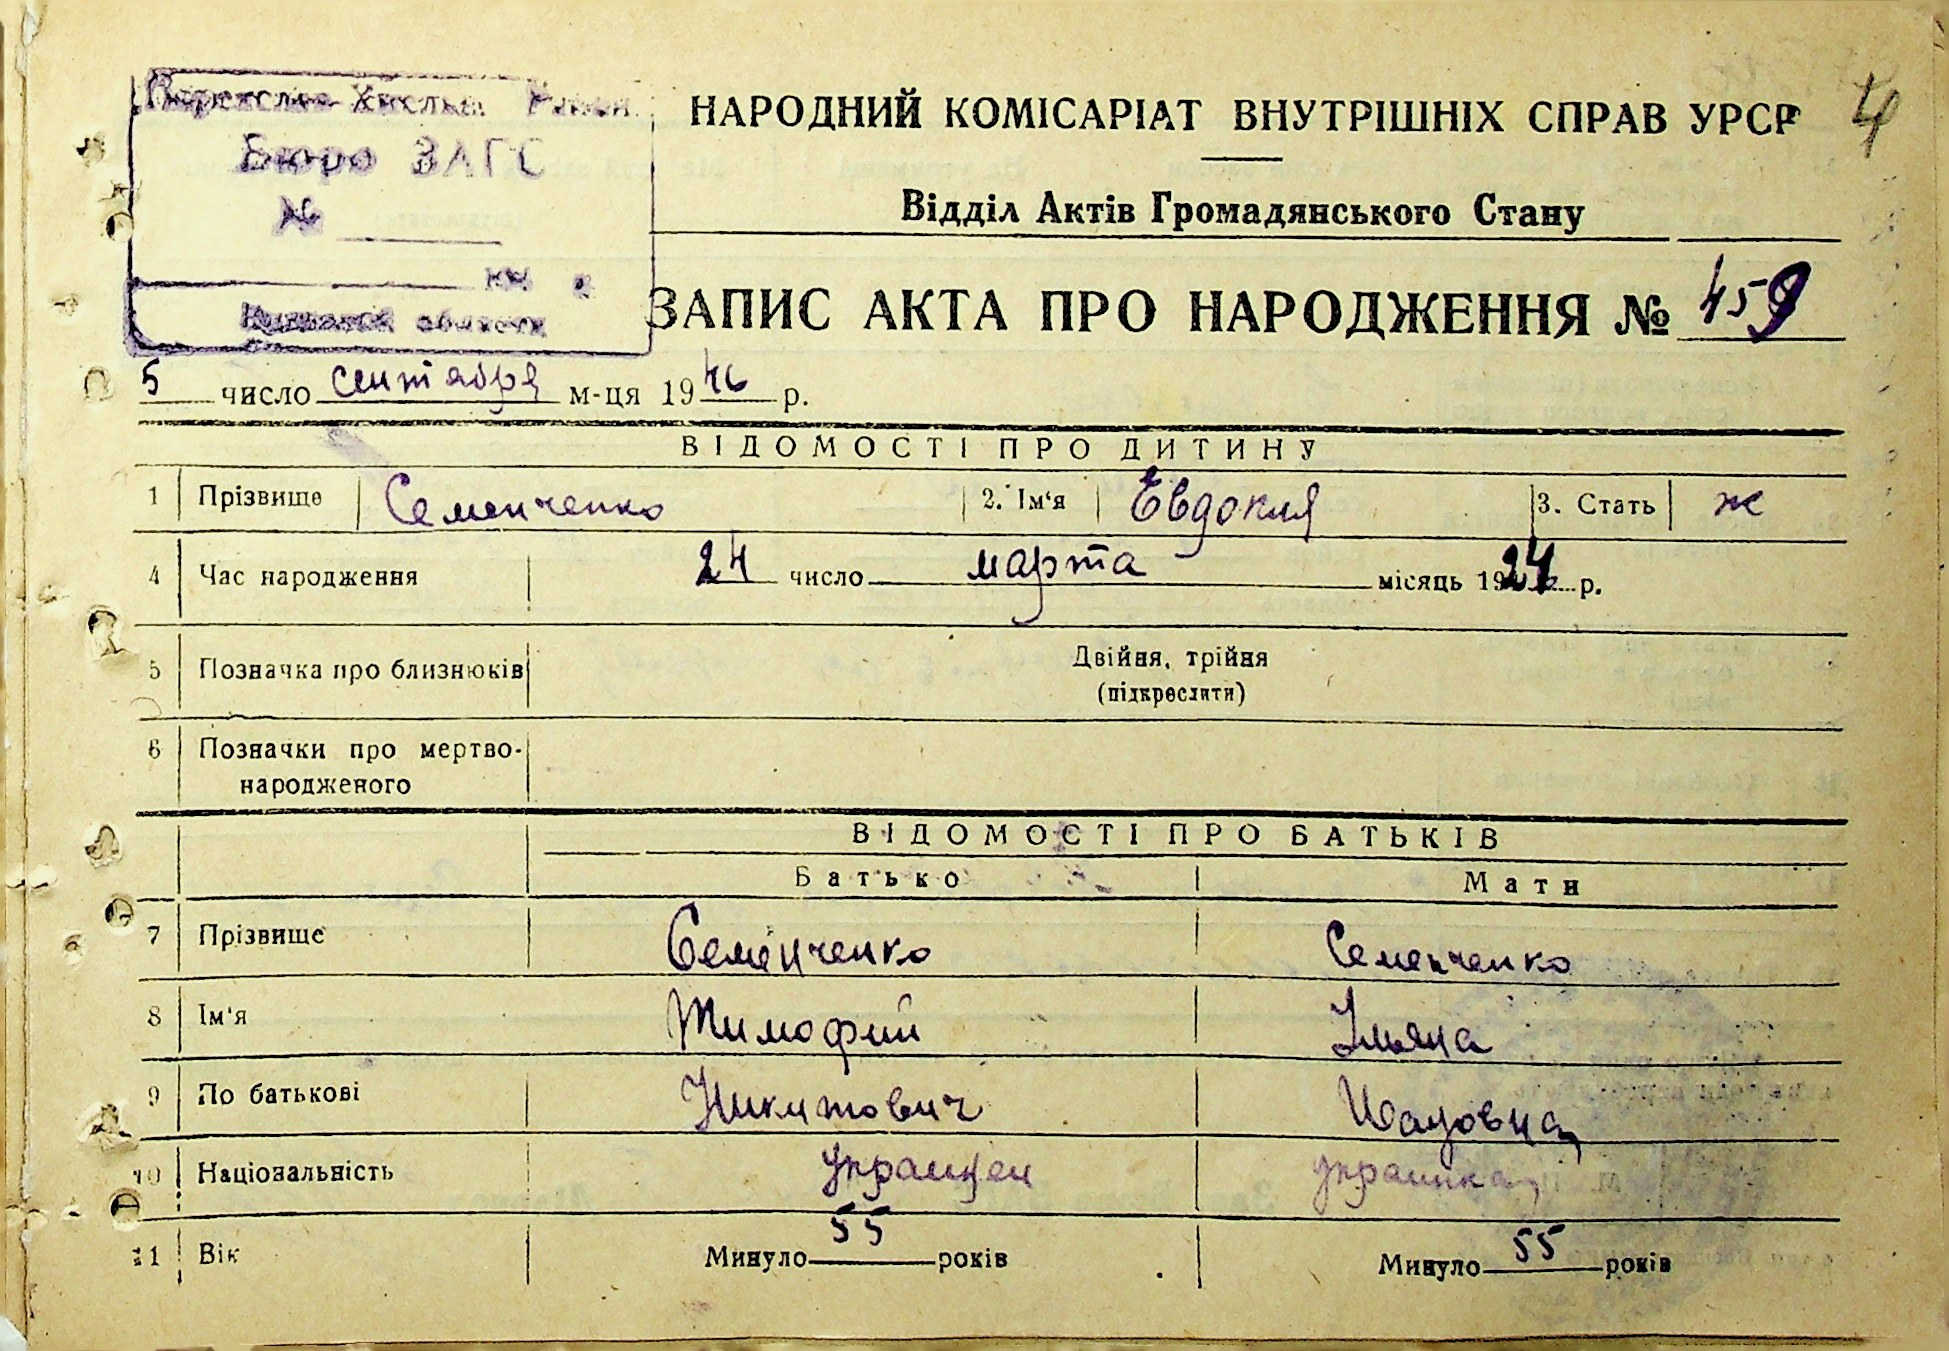 4
Бюро ЗАГС
№
області
НАРОДНИЙ КОМІСАРІАТ ВНУТРІШНІХ СПРАВ УРСР
Відділ Актів Громадянського Стану
ЗАПИС АКТА ПРО НАРОДЖЕННЯ № 459
5 число сентября м-ця 1946 р.
ВІДОМОСТІ ПРО ДИТИНУ
1 Прізвище Семенченко 2. Ім'я Евдокия 3. Стать ж
4 Час народження 24 число марта місяць 1924 р.
5 Позначка про близнюків Двійня, трійня
(підкреслити)
6 Позначки про мертво-
народженого
ВІДОМОСТІ ПРО БАТЬКІВ
Батько Мати
7 Прізвище Семенченко Семенченко
8 Ім'я Тимофий Ульяна
9 По батькові Никитович
10 Національність украинец украинка
11 Вік Минуло 55 років Минуло 55 років